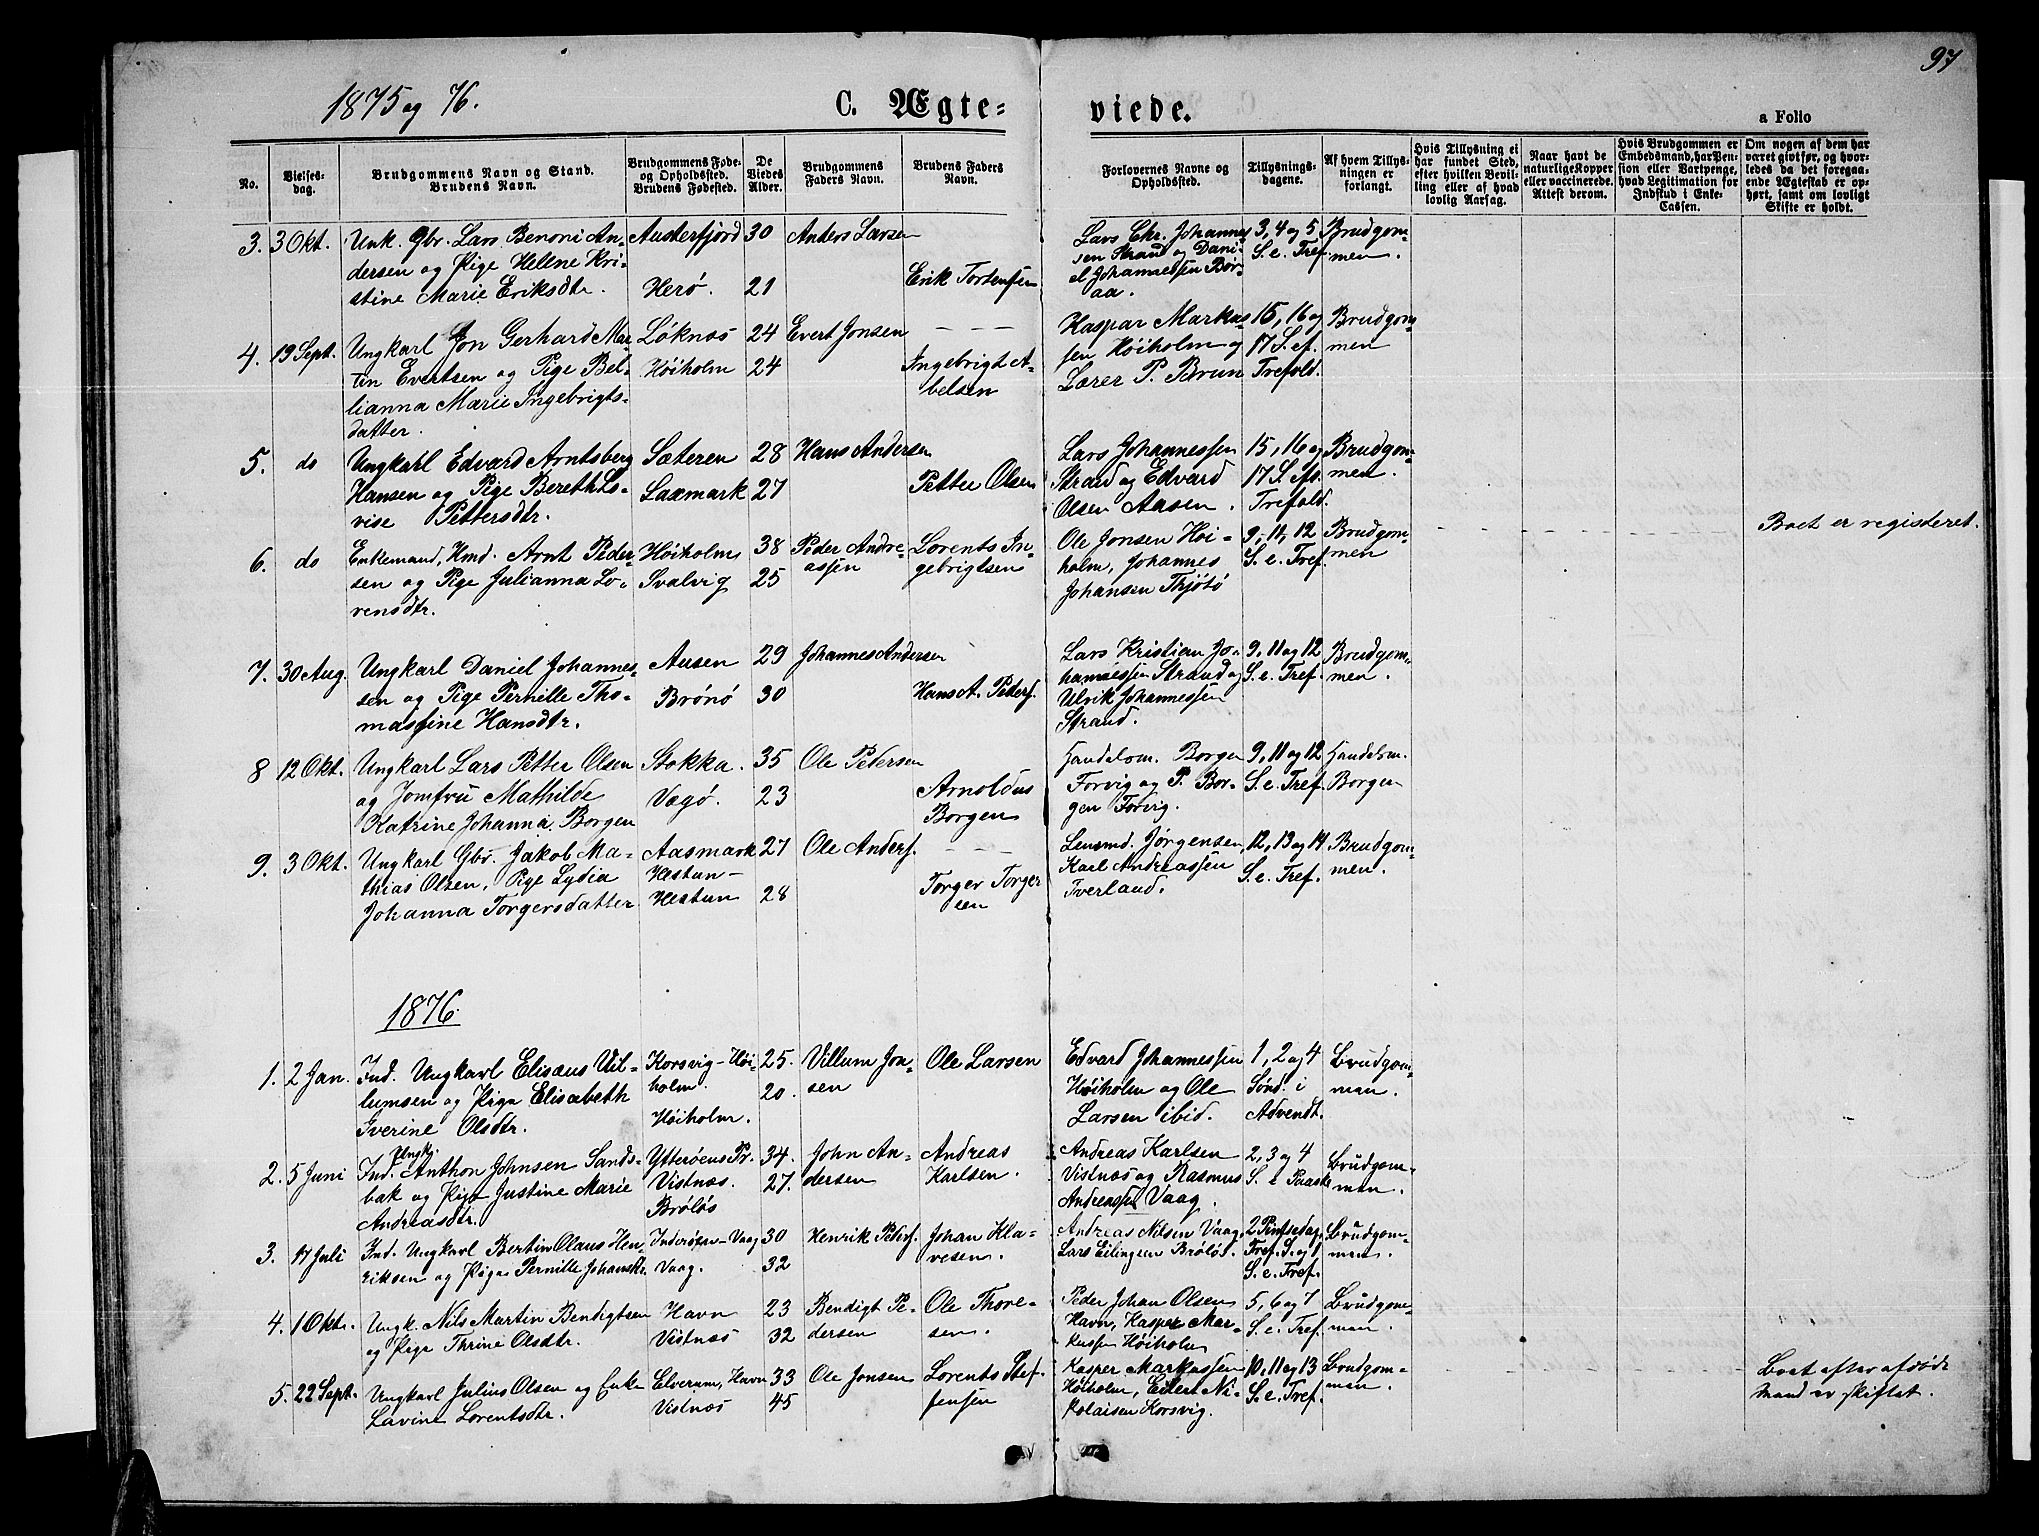 97
1875 og 76.
C. Ægte-
viede.
a Folio
No.
Vielses-
dag.
Brudgommens Navn og Stand.
Brudens Navn.
Brudgommens Føde-
og Opholdssted.
Brudens Fødested.
De
Viedes
Alder.
Brudgommens
Faders Navn.
Brudens Faders
Navn.
Forlovernes Navne og
Opholdssted.
Tillysnings-
dagene.
Af hvem Tillys-
ningen er
forlangt.
Hvis Tillysning ei
har fundet Sted,
efter hvilken Bevil-
ling eller af hvad
lovlig Aarsag.
Naar havt de
naturlige Kopper
eller vaccinerede.
Attest derom.
Hvis Brudgommen er
Embedsmand, har Pen-
sion eller Vartpenge,
hvad Legitimation for
Indskud i Enke-
Cassen.
Om nogen af dem har
været givt før, og hvor-
ledes da det foregaa-
ende Ægteskab er op-
hørt, samt om lovligt
Skifte er holdt.
3. 3 Okt.
Unk. Gbr. Lars Benoni An-
dersen og Pige Hellene Kri-
stine Marie Eriksdtr.
Austerfjord
Herö.
30
21
Anders Larsen
Erik Tortensen
Lars Chr. Johannes-
sen Strand og Dani-
el Johannessen Bör-
aa.
3, 4 og 5
S. e. Tref.
Brudgom-
men.
4. 19 Sept.
Ungkarl Jon Gerhard Mar-
tin Evertsen og Pige Bel-
lianna Marie Ingebrigts-
datter.
Löknæs
Höiholm
24
24
Evert Jonsen
Ingebrigt A-
belsen
Kaspar Markus-
sen Höiholm og
Lærer P. Brun
15, 16 og
17 S. ef.
Trefold.
Brudgom-
men
5. do
Ungkarl Edvard Arntsberg
Hansen og Pige Bereth Lo-
vise Pettersdtr.
Sæteren
Laxmark
28
27
Hans Andersen
Petter Olsen
Lars Johannessen
Strand og Edvard
Olsen Aasen.
15, 16 og
17 S. ef.
Trefold.
Brudgom-
men.
6. do
Enkemand, Hmd. Arnt Peder-
sen og Pige Julianna Lo-
rensdtr.
Höiholm
Svalvig
38
25
Peder Andre-
assen
Lorents In-
gebrigtsen
Ole Jonsen Höi-
holm, Johannes
Johansen Thjötö
9, 11, 12
S. e. Tref.
Brudgom-
men
Boet er registeret.
7. 30 Aug.
Ungkarl Daniel Johannes-
sen og Pige Pernille Tho-
massine Hansdtr.
Ausen
Brönö
29
30
Johannes Andersen
Hans A. Peders.
Lars Kristian Jo-
hannessen Strand og
Ulrik Johannessen
Strand.
9, 11 og 12
S. e. Tref.
Brudgom-
men.
8 12 Okt.
Ungkarl Lars Petter Olsen
og Jomfru Mathilde
Katrine Johanna Borgen
Stokka.
Vegö.
35
23
Ole Petersen
Arnoldus
Borgen
Handelsm. Borgen
Forvig og P. Bor-
gen Forvig.
9, 11 og 12
S. e. Tref.
Handelsm.
Borgen
9. 3 Okt.
Ungkarl Gbr. Jakob Ma-
thias Olsen, Pige Lydia
Johanna Torgersdatter
Aasmark
Hestun-
Hestun
27
28
Ole Anders.
Torger Torger
sen
Lensmd. Jørgensen,
Karl Andreassen
Tverland.
12, 13 og 14
S. e. Tref.
Brudgom-
men.
1876.
1. 2 Jan.
Ind. Ungkarl Elisæus Vil-
lumsen og Pige Elisabeth
Iverine Olsdtr.
Korsvig-Höi-
holm.
Höiholm.
25.
20.
Villum Jon-
sen
Ole Larsen
Edvard Johannessen
Höiholm og Ole
Larsen ibid.
1, 2 og 4
Sønd. i
Advendt.
Brudgom-
men.
2. 5 Juni
Ungk.
Ind. Anthon Johnsen Sands-
bak og Pige Justine Marie
Andreasdtr.
Ytteröens Pr.
Vistnæs.
Brölös
34.
27.
John An-
dersen
Andreas
Karlsen.
Andreas Karlsen
Vistnæs og Rasmus
Andreassen Vaag.
2, 3 og 4
S. e Paaske
Brudgom-
men.
3. 17 Juli
Ind. Ungkarl Bertin Olaus Hen-
riksen og Pige Pernille Johansdtr.
Inderöen-Vaag
Vaag.
30
32
Henrik Peders.
Johan Kla-
vesen.
Andreas Nilsen Vaag.
Lars Eilingsen Brölös.
2 Pintsedag,
Tref. S. og 1
S. e. Tref.
Brudgom-
men.
4. 1 Oktr.
Ungk. Nils Martin Bendigtsen
og Pige Thrine Olsdtr.
Havn
Vistnæs
23
32
Bendigt Pe-
dersen
Ole Thore-
sen.
Peder Johan Olsen
Havn, Kasper Mar-
kussen Höiholm
5, 6 og 7
S. e. Tref.
Brudgom-
men.
5. 22 Sept.
Ungkarl Julius Olsen og Enke
Lavine Lorentsdtr.
Elverum, Havn
Vistnæs
33
45
Ole Jonsen
Lorents Stef-
fensen
Kasper Markussen
Höiholm, Eder Ni-
kolaisen Korsvig.
10, 11 og 13
S. e. Tref.
Brudgom-
men.
Boet efter afdøde
Mand er skiftet.